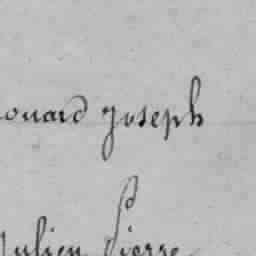 ouard Joseph
Julien Pierre